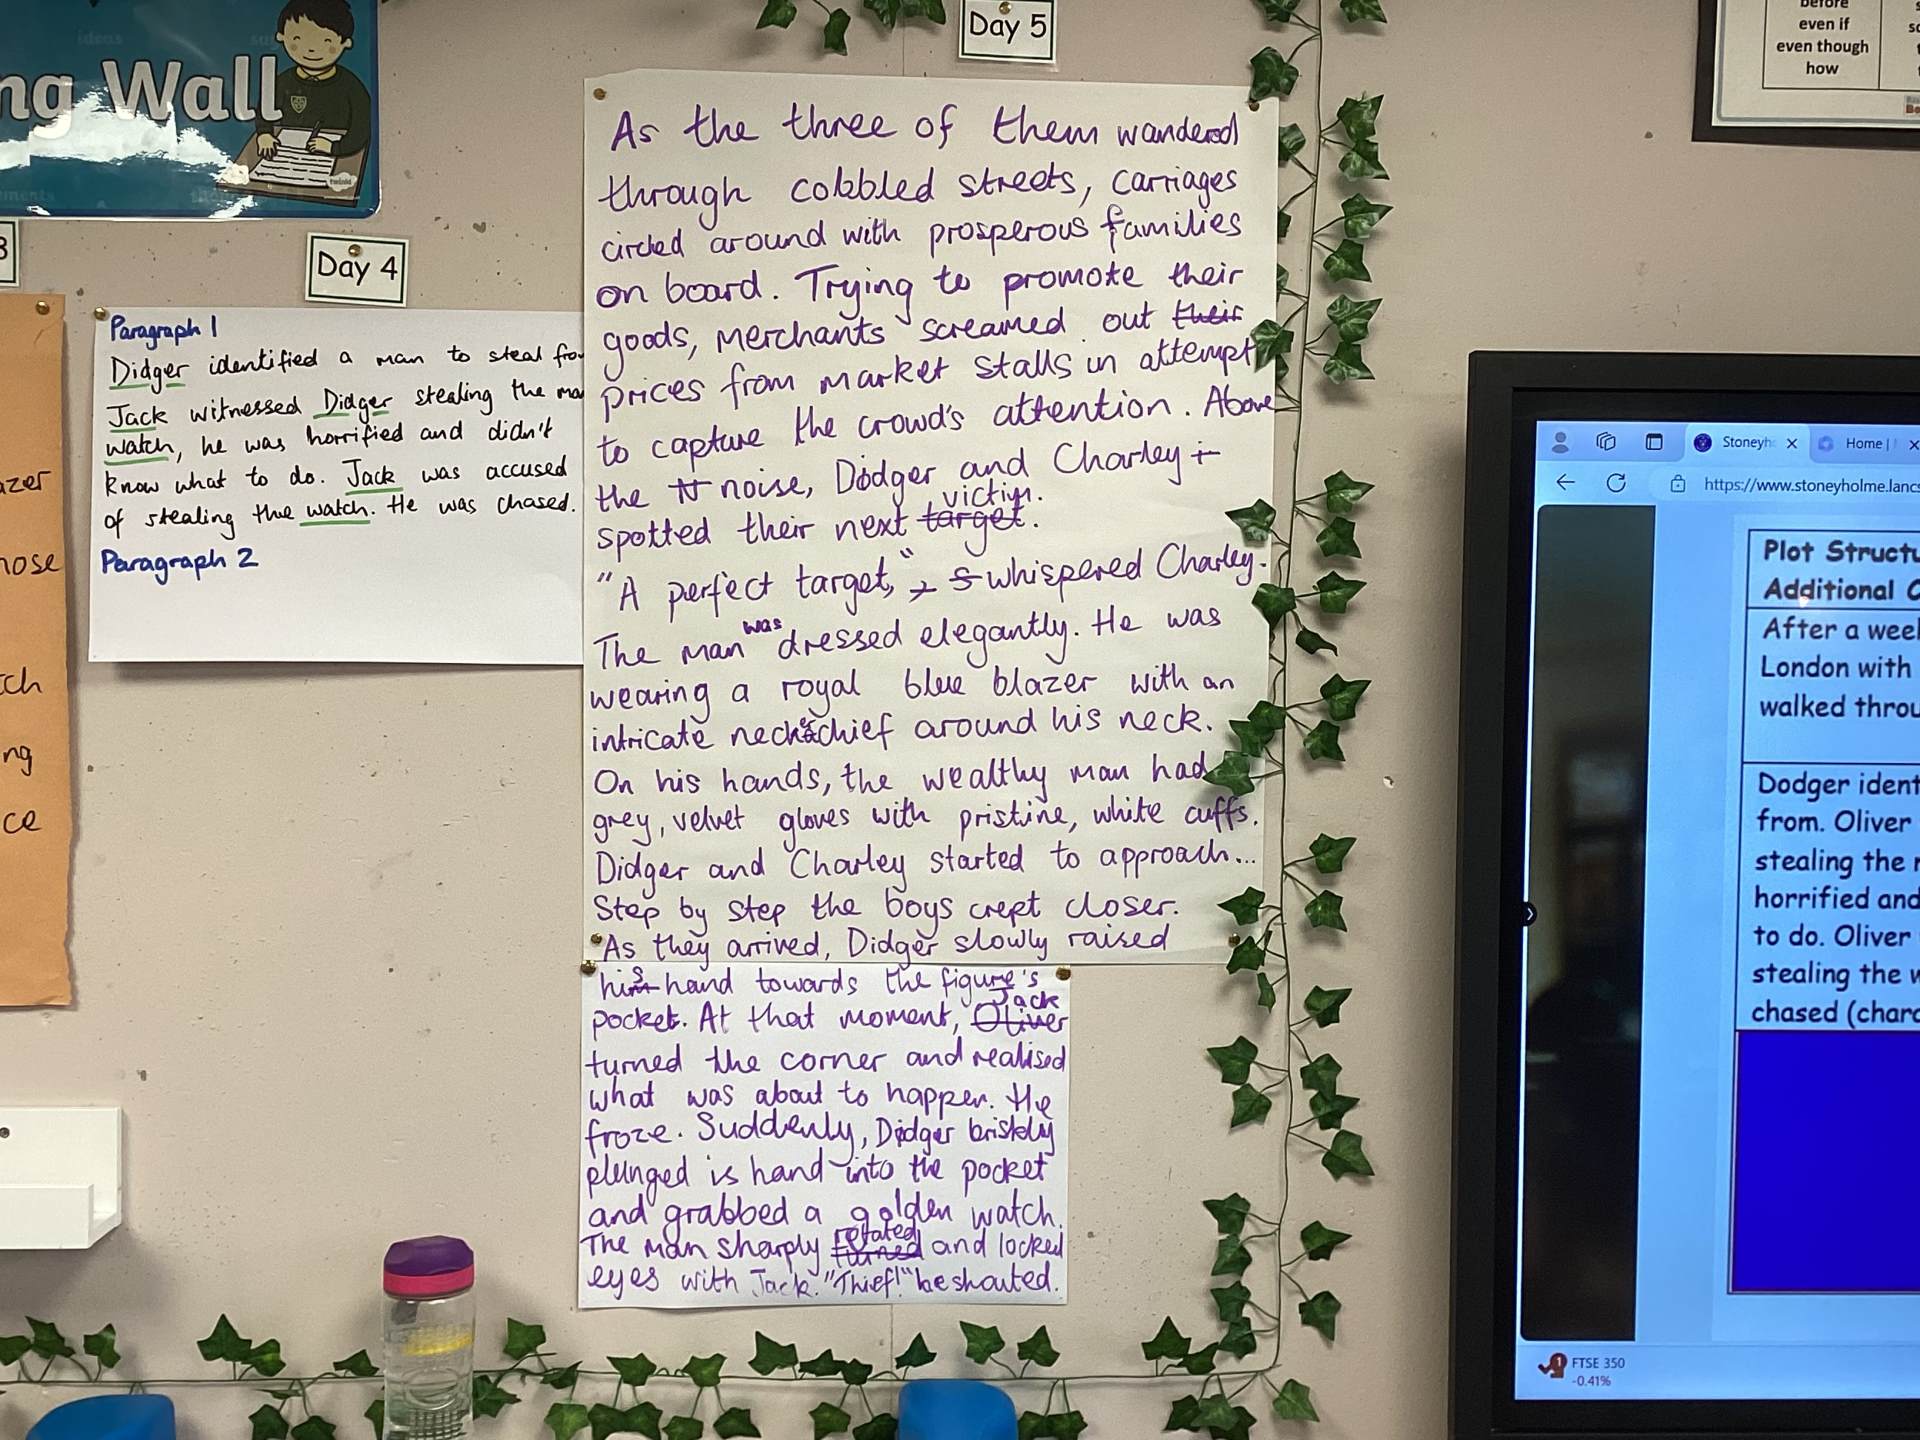 ng Wall
Day 4
Paragraph 1
Didger identified a man to steal fro
Jack witnessed Didger stealing the ma
watch, he was horrified and didn't
know what to do. Jack was accused
of stealing the watch. He was chased.
Paragraph 2
azer
nose
tch
ng
ce
Day 5
As the three of them wandered
through cobbled streets, carriages
circled around with prosperous families
on board. Trying to promote their
goods, merchants screamed out their
prices from market stalls in attempt
to capture the crowd's attention. Above
the N noise, Dodger and Charley
victim.
spotted their next target.
"A perfect target," whispered Charley.
was
The man dressed elegantly. He was
wearing a royal blue blazer with an
intricate neckerchief around his neck.
On his hands, the wealthy man had
grey, velvet gloves with pristine, white cuffs.
Didger and Charley started to approach...
Step by step the boys crept closer.
As they arrived, Didger slowly raised
his hand towards the figure's
Jack
pocket. At that moment, Oliver
turned the corner and realised
what was about to happen. He
froze. Suddenly, Didger briskly
plunged is hand into the pocket
and grabbed a golden watch.
rotated
The man sharply turned and locked
eyes with Jack. "Thief!" he shouted.
before
even if
even though
how
Stoneyh
Home |
https://www.stoneyholme.lancs
Plot Structu
Additional
After a week
London with
walked throu
Dodger ident
from. Oliver
stealing the
horrified and
to do. Oliver
stealing the w
chased (chara
FTSE 350
-0.41%
twinkl